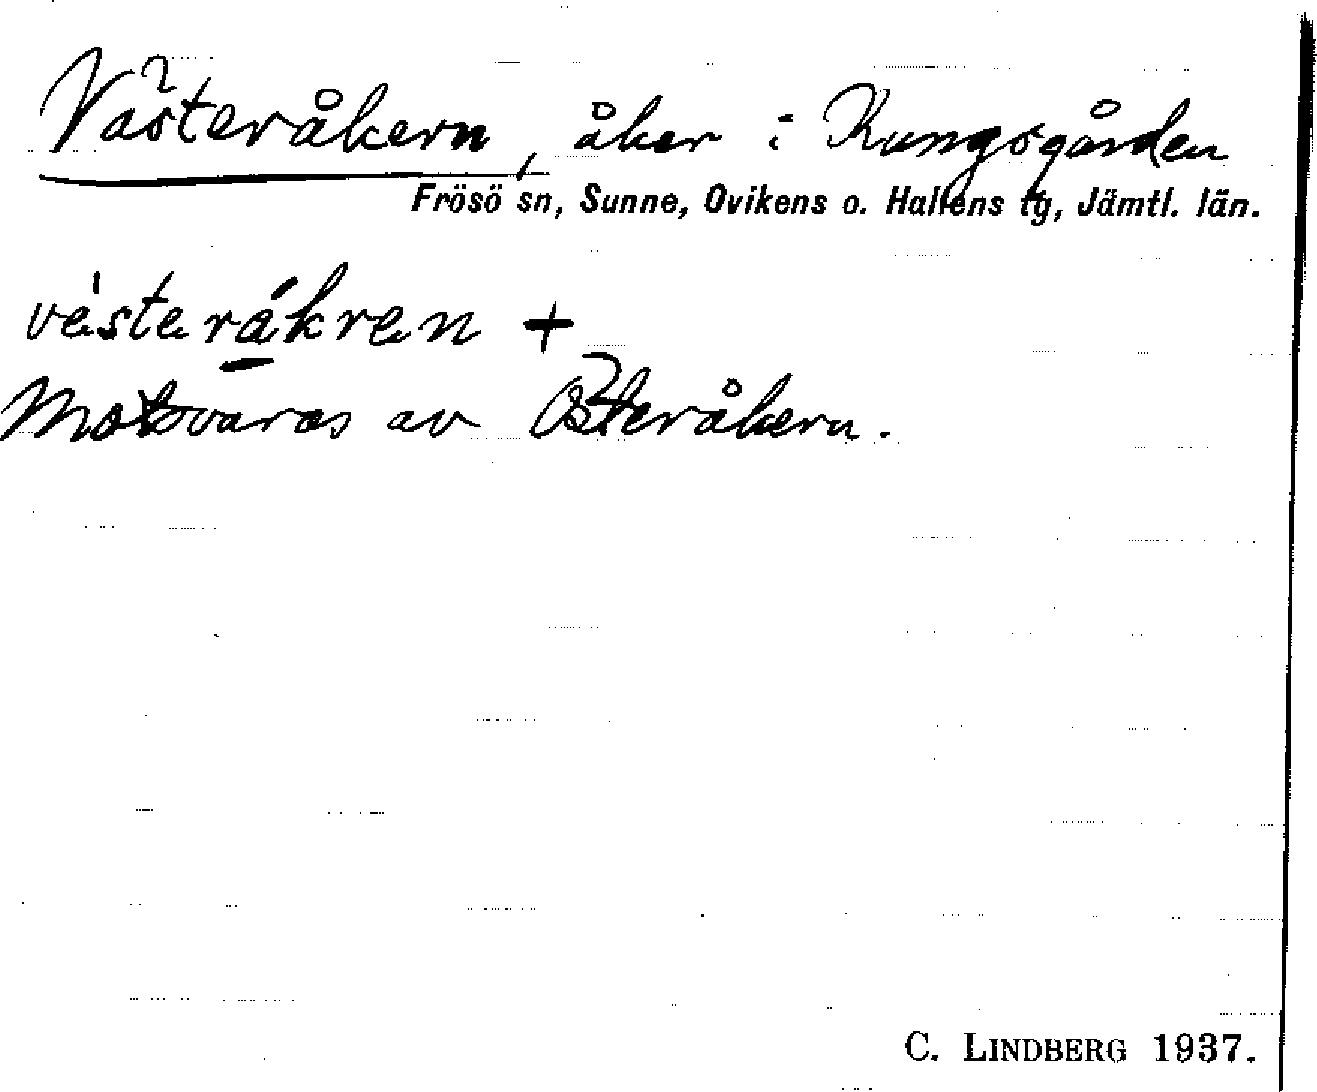 Västeråkern, åker i Kungsgården
Frösö sn, Sunne, Ovikens o. Hallens tg, Jämtl. län.
vèsteråkren +
Motsvaras av Österåkern.
C. LINDBERG 1937.